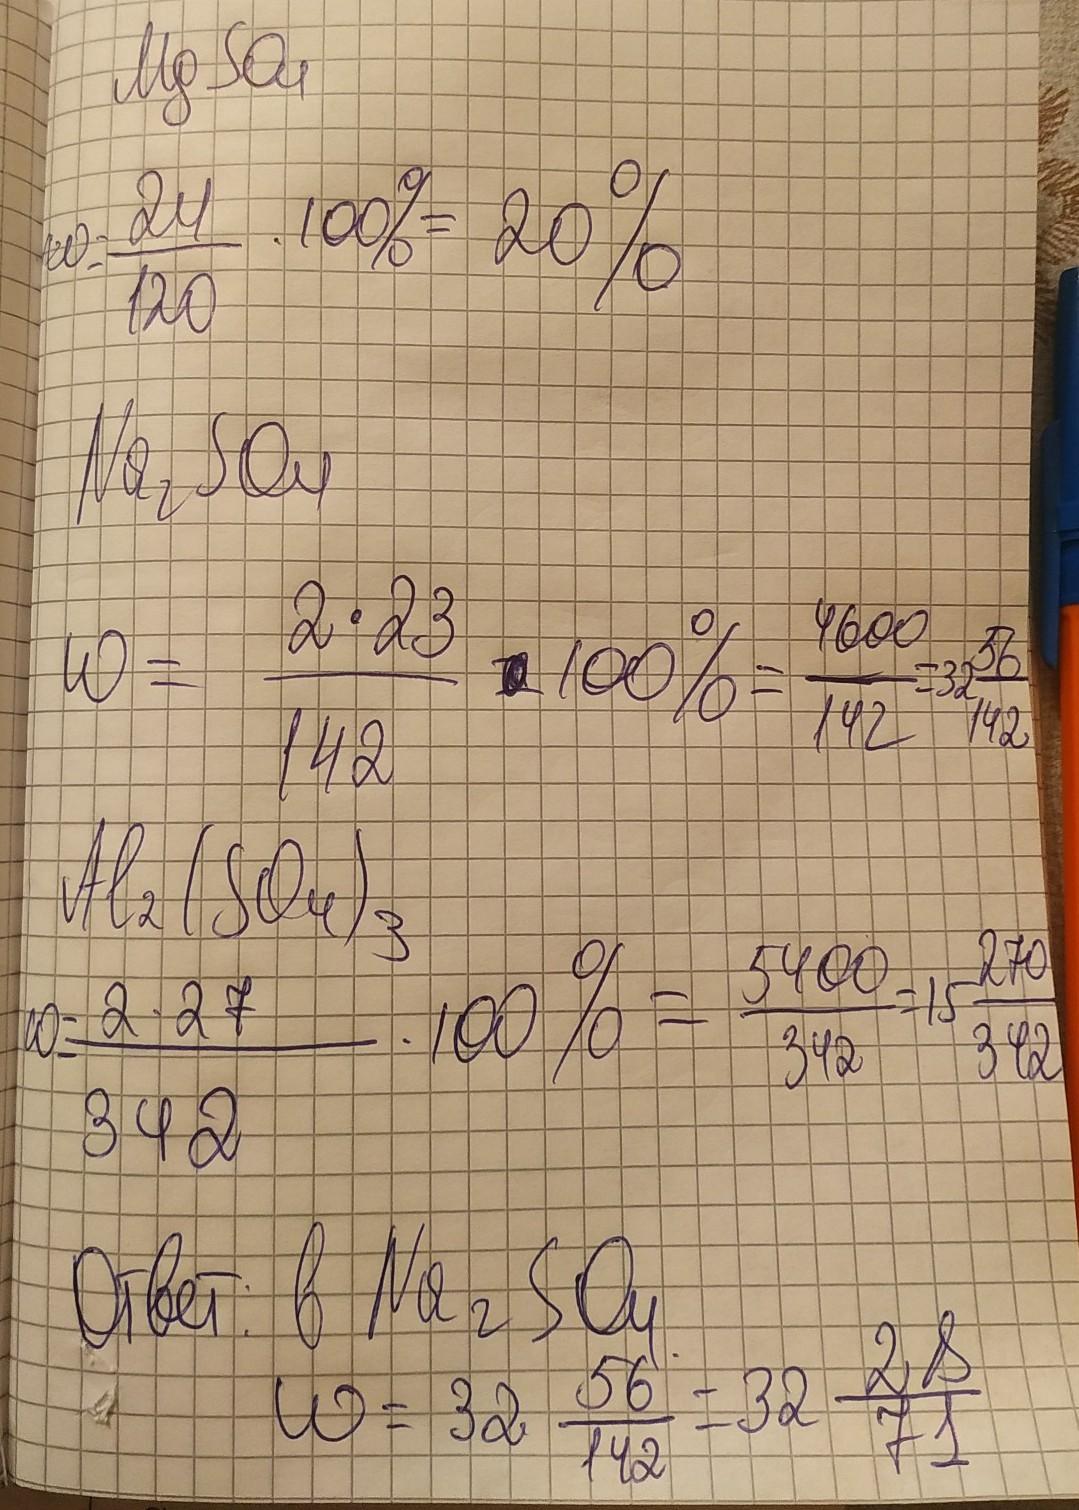 MgSO4
w = 24/120 · 100% = 20%
Na2SO4
w = 2·23/142 · 100% = 4600/142 = 32 56/142
Al2(SO4)3
w = 2·27/342 · 100% = 5400/342 = 15 270/342
Ответ: в Na2SO4
w = 32 56/142 = 32 28/71